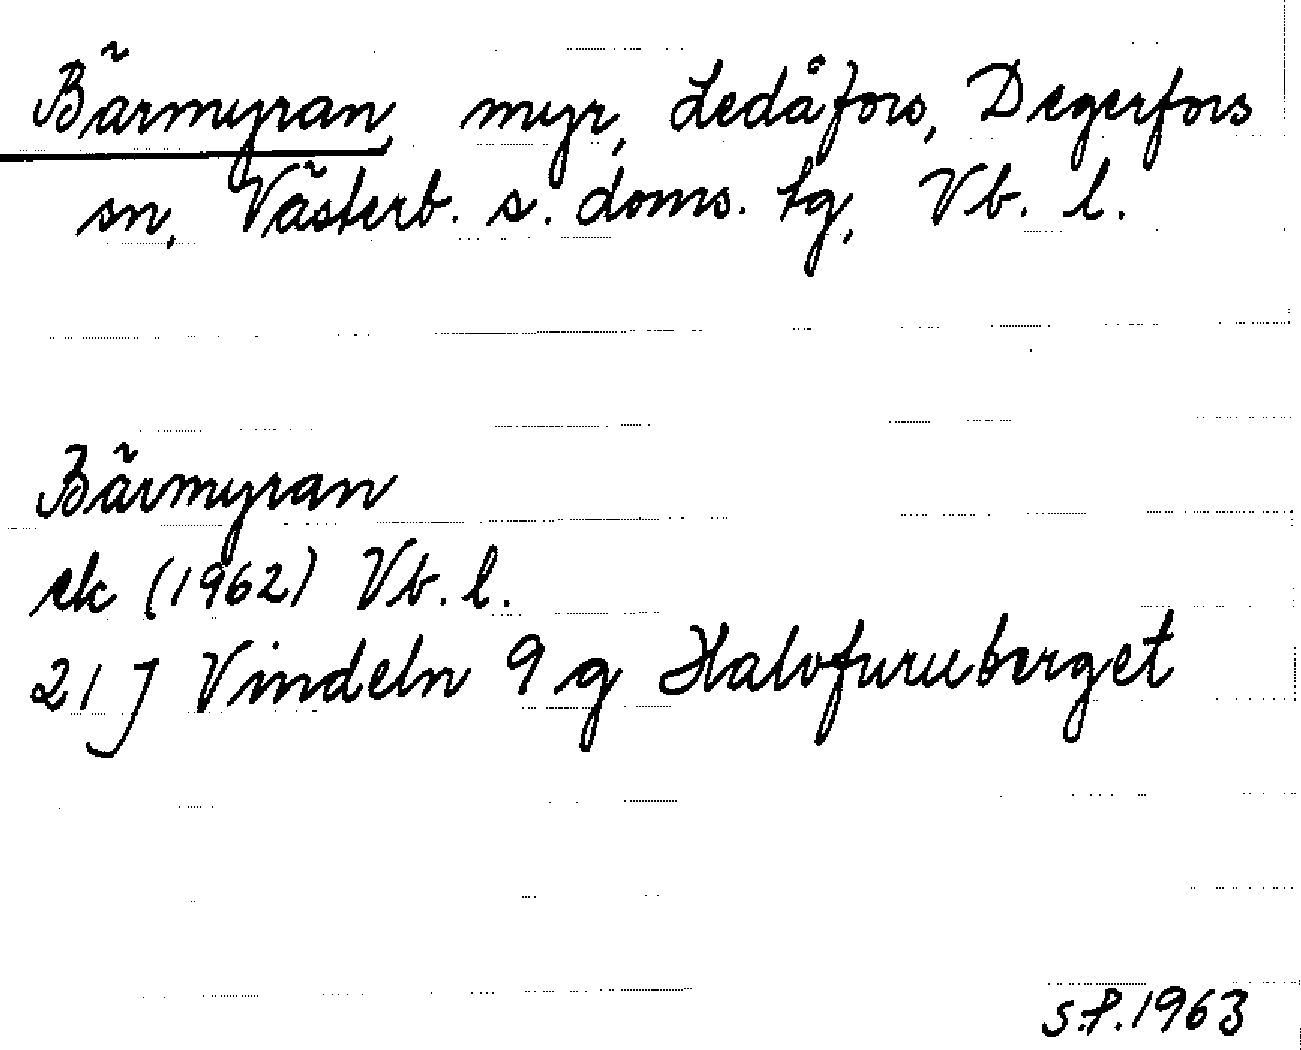 Bärmyran, myr, Ledåfors, Degerfors
sn, Västerb. s. doms. tg, Vb. l.
Bärmyran
ek (1962) Vb. l.
21 J Vindeln 9 g Halvfuruberget
S.P. 1963